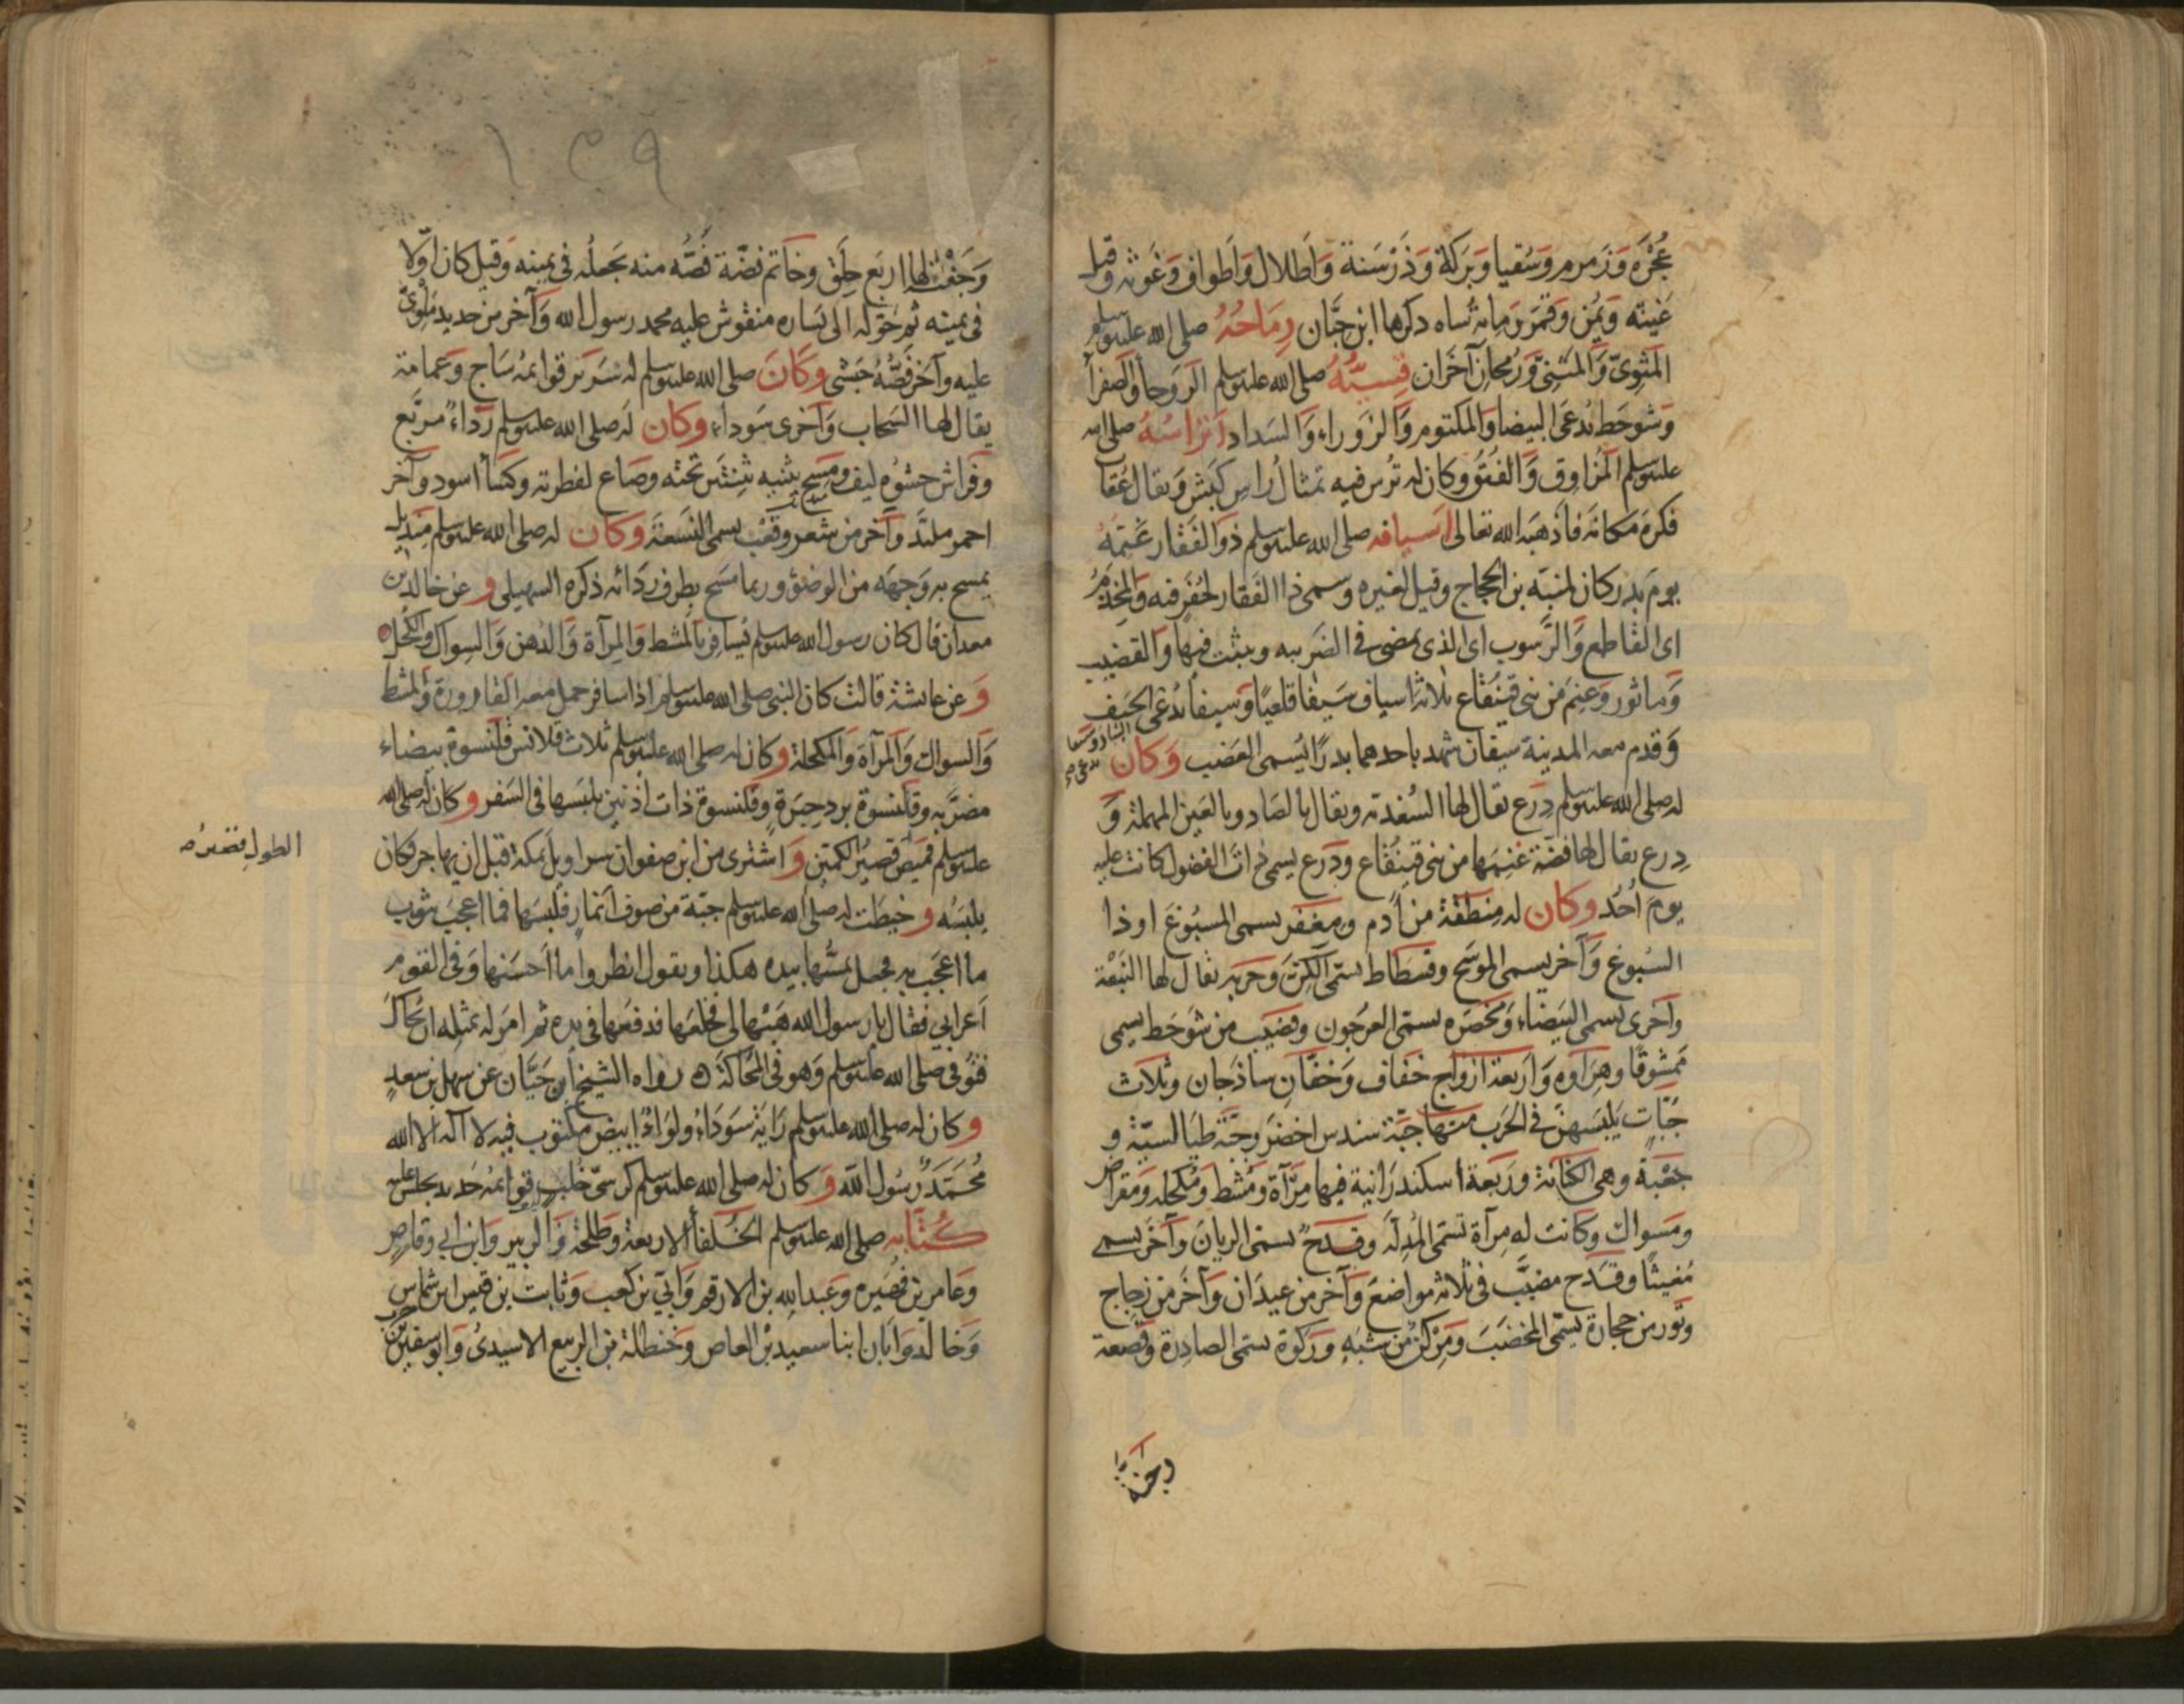 عُجْرَه وَزَمزم وَسُقيا وَبَرَكة وَذَرْسَنة وَاَطلال وَاَطواف وَغَوثه وقيل
غَيثه وَيُمْن وَقَمَر وَمِائة شاه ذكرها ابن حبَّان رِمَاحُهُ صلى الله عليه وسلم
المَثوِىّ وَالمثَنِىّ وَرُمحان آخَران قِسِيُّهُ صلى الله عليه وسلم الرَوحاْ وَالصَفراْ
وَشَوحَط تُدعَى البيضا وَالمكتوم وَالزَوراء وَالسَداد اَتراسُهُ صلى الله
عليه وسلم المزلوق وَالفُتَق وكان له تُرس فيه تمثال رُاس كَبش وَيقال عُقاب
فكره مَكانَه فاَذهبَه الله تعالى اَسيافه صلى الله عليه وسلم ذو الفَقار غَنِمَهُ
يومَ بدر كان لمنبّه بن الحجاج وقيل لغيره وسمى ذا الفَقار لحُفَر فيه وَالمِخذَم
اى القاطع وَالرَّسوب اى الذى يمضى فى الضَريبه ويثبت فيها وَالقضيب
وَماثور وَغنِمَ من بنى قينُقاع ثلاثة اسياف سَيفا قلعيًا وَسيفا يُدعى الحَيف
البتار وسيفا يدعى صح
وَقدم معه المدينة سيفان شهد باحدهما بدرًا يُسمى العَضب وَكان
له صلى الله عليه وسلم دِرَع يقال لها السُغديّه ويقال بالصَاد وبالعَين المهملة وَ
دِرع يقال لها فضّة غنِمَها من بنى قينُقاع ودِرع يسمى ذات الفضول كانت عليه
يومَ اُحُد وكان له مِنطقة من اَدم ومِغفر يسمى المسبُوغ او ذا
السُبوغ وَآخر يسمى الموشَح وفسطاط يسمّى الكِنّ وَحربه يقال لها النَبْعة
وآخرى تسمى البَيضاء وَمخصَره تسمى العرجون وقضيب من شَوحَط يسمى
مَمشوقا وهِرَاوه وَاَربعة ازواج خفاف وَخفّان ساذجان وثلاث
جَبّات يَلبَسهنّ فى الحَرب منها جبّة سندس اخضر وجبّة طيالسيّة و
جَعْبَة وهى الكنانة ورَبعَة اسكندرانية فيها مرآة ومُشط ومُكحله ومقراض
ومَسواك وكانت له مِرآة تسمى المُدِلّه وقدح يسمى الريان وآخر يسمى
مُغيثًا وقدح مضبّب فى ثلاثة مواضع وَآخر من عيدان وَآخر من زجاج
وتَور من حجارة يسمّى المخضَب ومِركن من شَبَه ورَكوة تسمى الصادِرة وقصعة
وجفنة
١٣٩
وَجَفْنة لها اربَع حِلَق وخاتم فضّة فَصُّه منه يَجعلُه فى يمينه وَقيل كان اَوّلا
فى يمينه ثم حَوّله الى يَساره منقوش عليه محمد رسول الله وَآخر من حديد مَلْوِىّ
عليه وآخر فَصُّهُ حَبَشى وَكَانَ صلى الله عليه وسلم له سَرير قوائمهُ سَاج وَعمامة
يقال لها السَحاب وَآخرى سَوداء وكان له صلى الله عليه وسلم رَداء مربَّع
وَفراش حشوُه ليف ومِسح يثنيه ثِنيَتين تحته وصَاع لفطرته وكساْ اسود وآخر
احمر ملبَّد وآخر من شعر وقعْب يسمى السَعة وكان له صلى الله عليه وسلم مِنديل
يمسح به وَجهَه من الوضوْ وربما مسَح بطرف ردَائه ذكره السهيلى و عن خالد بن
معدان قال كان رسول الله عليه وسلم يُسافر بالمشط وَالمِرآة وَالدُهن وَالسِواك وَالكحل
وَعن عائشة قالت كان النبى صلى الله عليه وسلم اذا سافر حمل معه القارورة وَالمشط
وَالسواك وَالمرآة وَالمكحلة وكان له صلى الله عليه وسلم ثلاث قلانس قَلنسوة بيضاء
مضرَّبه وقلَنسوة برد حِبَرة وقلنسوة ذات اُذنين يلبَسها فى السَفر و كان له صلى الله
عليه وسلم قميَص قصيُر الكمّين وَاشترى من ابن صفوان سراويل بمكة قبل ان يهاجر فكان
الطول قصير صح
يلبَسُه و خيطَت له صلى الله عليه وسلم جبّة من صوف اَنمار فلَبسَها فما اعجبَ بثوب
ما اعجَب به فجعل يمسُّها بيده هكذا ويقول انظروا ما اَحسَنها وَفى القوم
اَعرابى فقال يا رسول الله هَبْها لى فخلعَها فدفعَها فى يده ثم امَر له بمثله ان يُحاك
فتُوفى صلى الله عليه وسلم وَهو فى المُحاكة ه رواه الشيخ ابن حَيَّان عن سهل بن سعدٍ
وكان له صلى الله عليه وسلم رَايَة سَودَاءُ ولوَاءُ ابيَض مكتوب فيه لا اله الا الله
مُحَمَّدٌ رَسُول الله وَكان له صلى الله عليه وسلم كرسىّ خُلب قوائمُه حَديد يجلس عليه
كُتّابه صلى الله عليه وسلم الخُلفاْ الاربعة وطلحة وَالزبير وَابن ابى وقاص
وَعامر بن فهَيره وعَبد الله بن الارقم وَابىّ بن كعب وَثابت بن قيس ابن شماس
وَخالد وَابَان ابنا سعيد بن العاص وَحَنظلة بن الربيع الاسيدىُ وَابو سفين بن حرب
www.ical.ir